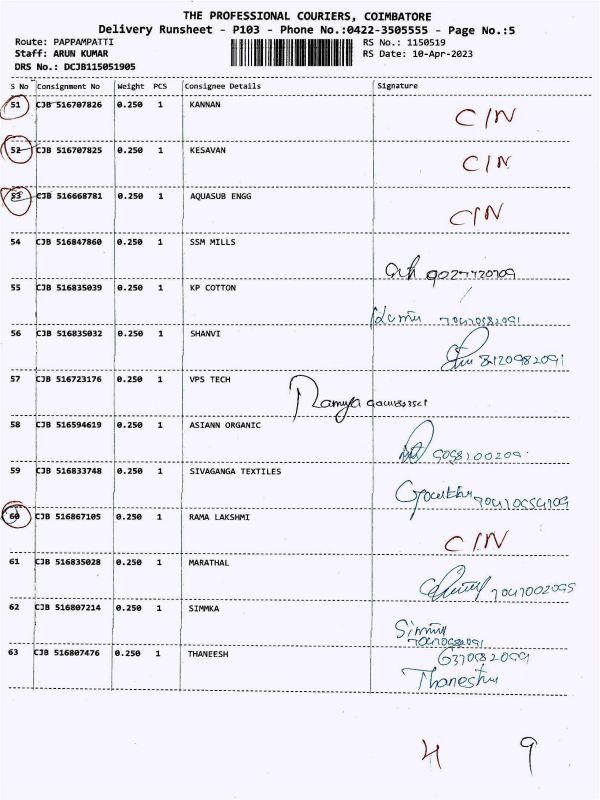 THE PROFESSIONAL COURIERS, COIMBATORE
Delivery Runsheet - P103 - Phone No.:0422-3505555 - Page No.:5
Route: PAPPAMPATTI RS No.: 1150519
Staff: ARUN KUMAR RS Date: 10-Apr-2023
DRS No.: DCJB115051905
S No Consignment No Weight PCS Consignee Details Signature
51 CJB 516707826 0.250 1 KANNAN C/N
52 CJB 516707825 0.250 1 KESAVAN C/N
53 CJB 516668781 0.250 1 AQUASUB ENGG C/N
54 CJB 516847860 0.250 1 SSM MILLS
55 CJB 516835039 0.250 1 KP COTTON
56 CJB 516835032 0.250 1 SHANVI 8120982091
57 CJB 516723176 0.250 1 VPS TECH Ramya
58 CJB 516594619 0.250 1 ASIANN ORGANIC
59 CJB 516833748 0.250 1 SIVAGANGA TEXTILES
60 CJB 516867105 0.250 1 RAMA LAKSHMI C/N
61 CJB 516835028 0.250 1 MARATHAL
62 CJB 516807214 0.250 1 SIMMKA
63 CJB 516807476 0.250 1 THANEESH
4 9